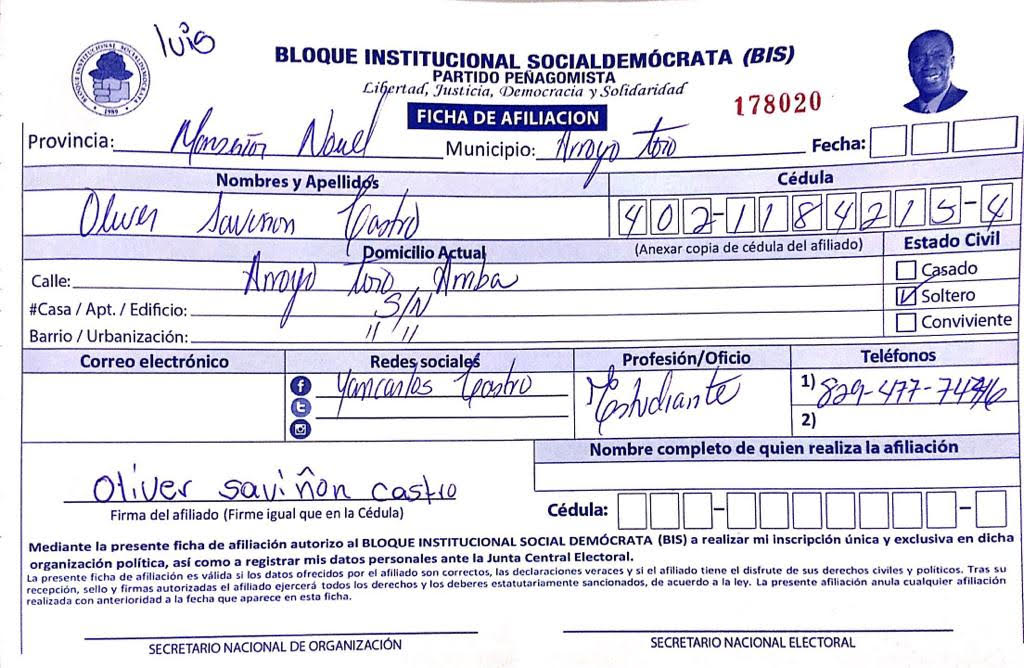 luis
BLOQUE INSTITUCIONAL SOCIALDEMÓCRATA (BIS)
PARTIDO PEÑAGOMISTA
Libertad, Justicia, Democracia y Solidaridad
178020
FICHA DE AFILIACION
Provincia: Monseñor Nouel Municipio: Arroyo toro Fecha:
Nombres y Apellidos Cédula
Oliver Saviñon Castro 402-1184215-4
(Anexar copia de cédula del afiliado)
Domicilio Actual Estado Civil
Calle: Arroyo toro Arriba Casado
#Casa / Apt. / Edificio: S/N Soltero
Barrio / Urbanización: " " Conviviente
Correo electrónico Redes sociales Profesión/Oficio Teléfonos
Yancarlos Castro Estudiante 1) 829-477-
2)
Nombre completo de quien realiza la afiliación
Oliver saviñon castro
Firma del afiliado (Firme igual que en la Cédula) Cédula:
Mediante la presente ficha de afiliación autorizo al BLOQUE INSTITUCIONAL SOCIAL DEMÓCRATA (BIS) a realizar mi inscripción única y exclusiva en dicha
organización política, así como a registrar mis datos personales ante la Junta Central Electoral.
La presente ficha de afiliación es válida si los datos ofrecidos por el afiliado son correctos, las declaraciones veraces y si el afiliado tiene el disfrute de sus derechos civiles y políticos. Tras su
recepción, sello y firmas autorizadas el afiliado ejercerá todos los derechos y los deberes estatutariamente sancionados, de acuerdo a la ley. La presente afiliación anula cualquier afiliación
realizada con anterioridad a la fecha que aparece en esta ficha.
SECRETARIO NACIONAL DE ORGANIZACIÓN SECRETARIO NACIONAL ELECTORAL